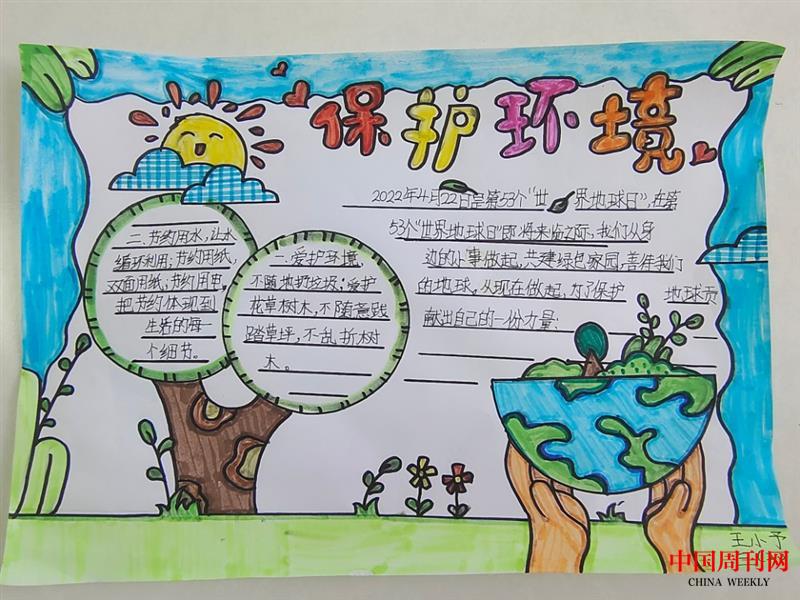 保护环境
2022年4月22日是第53个“世界地球日”,在第
53个“世界地球日”即将来临之际,我们从身
边的小事做起,共建绿色家园,善待我们
的地球。从现在做起,为了保护地球贡
献出自己的一份力量:
一、爱护环境,
不随地扔垃圾;爱护
花草树木,不随意践
踏草坪,不乱折树
木。
二、节约用水,让水
循环利用;节约用纸,
双面用纸,节约用电,
把节约体现到
生活的每一
个细节。
王小予
中国周刊网
CHINA WEEKLY